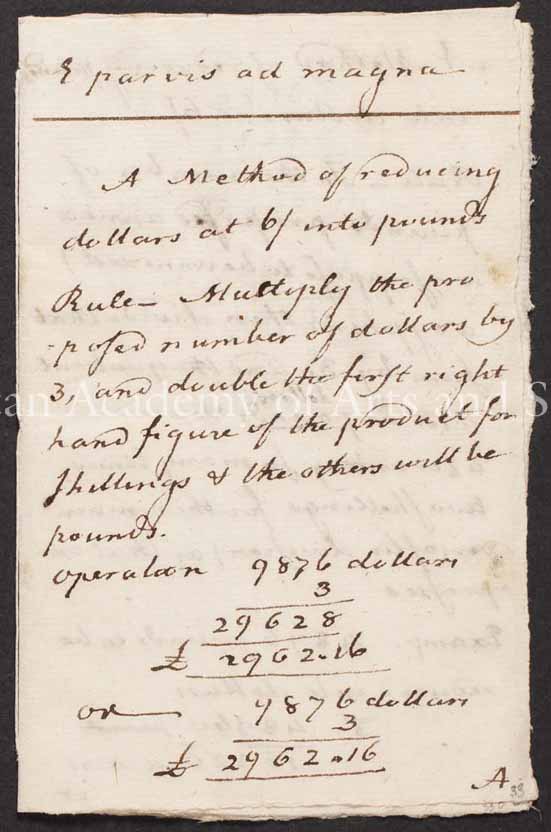 E parvis ad magna
A Method of reducing
dollars at 6/ into pounds
Rule - Multiply the pro
-posed number of dollars by
3, and double the first right
can Academy of Arts and S
hand figure of the product for
shillings & the others will be
pounds.
operation 9876 dollars
3
29628
£ 2962.16
or 9876 dollars
3
£ 2962.16
A
33